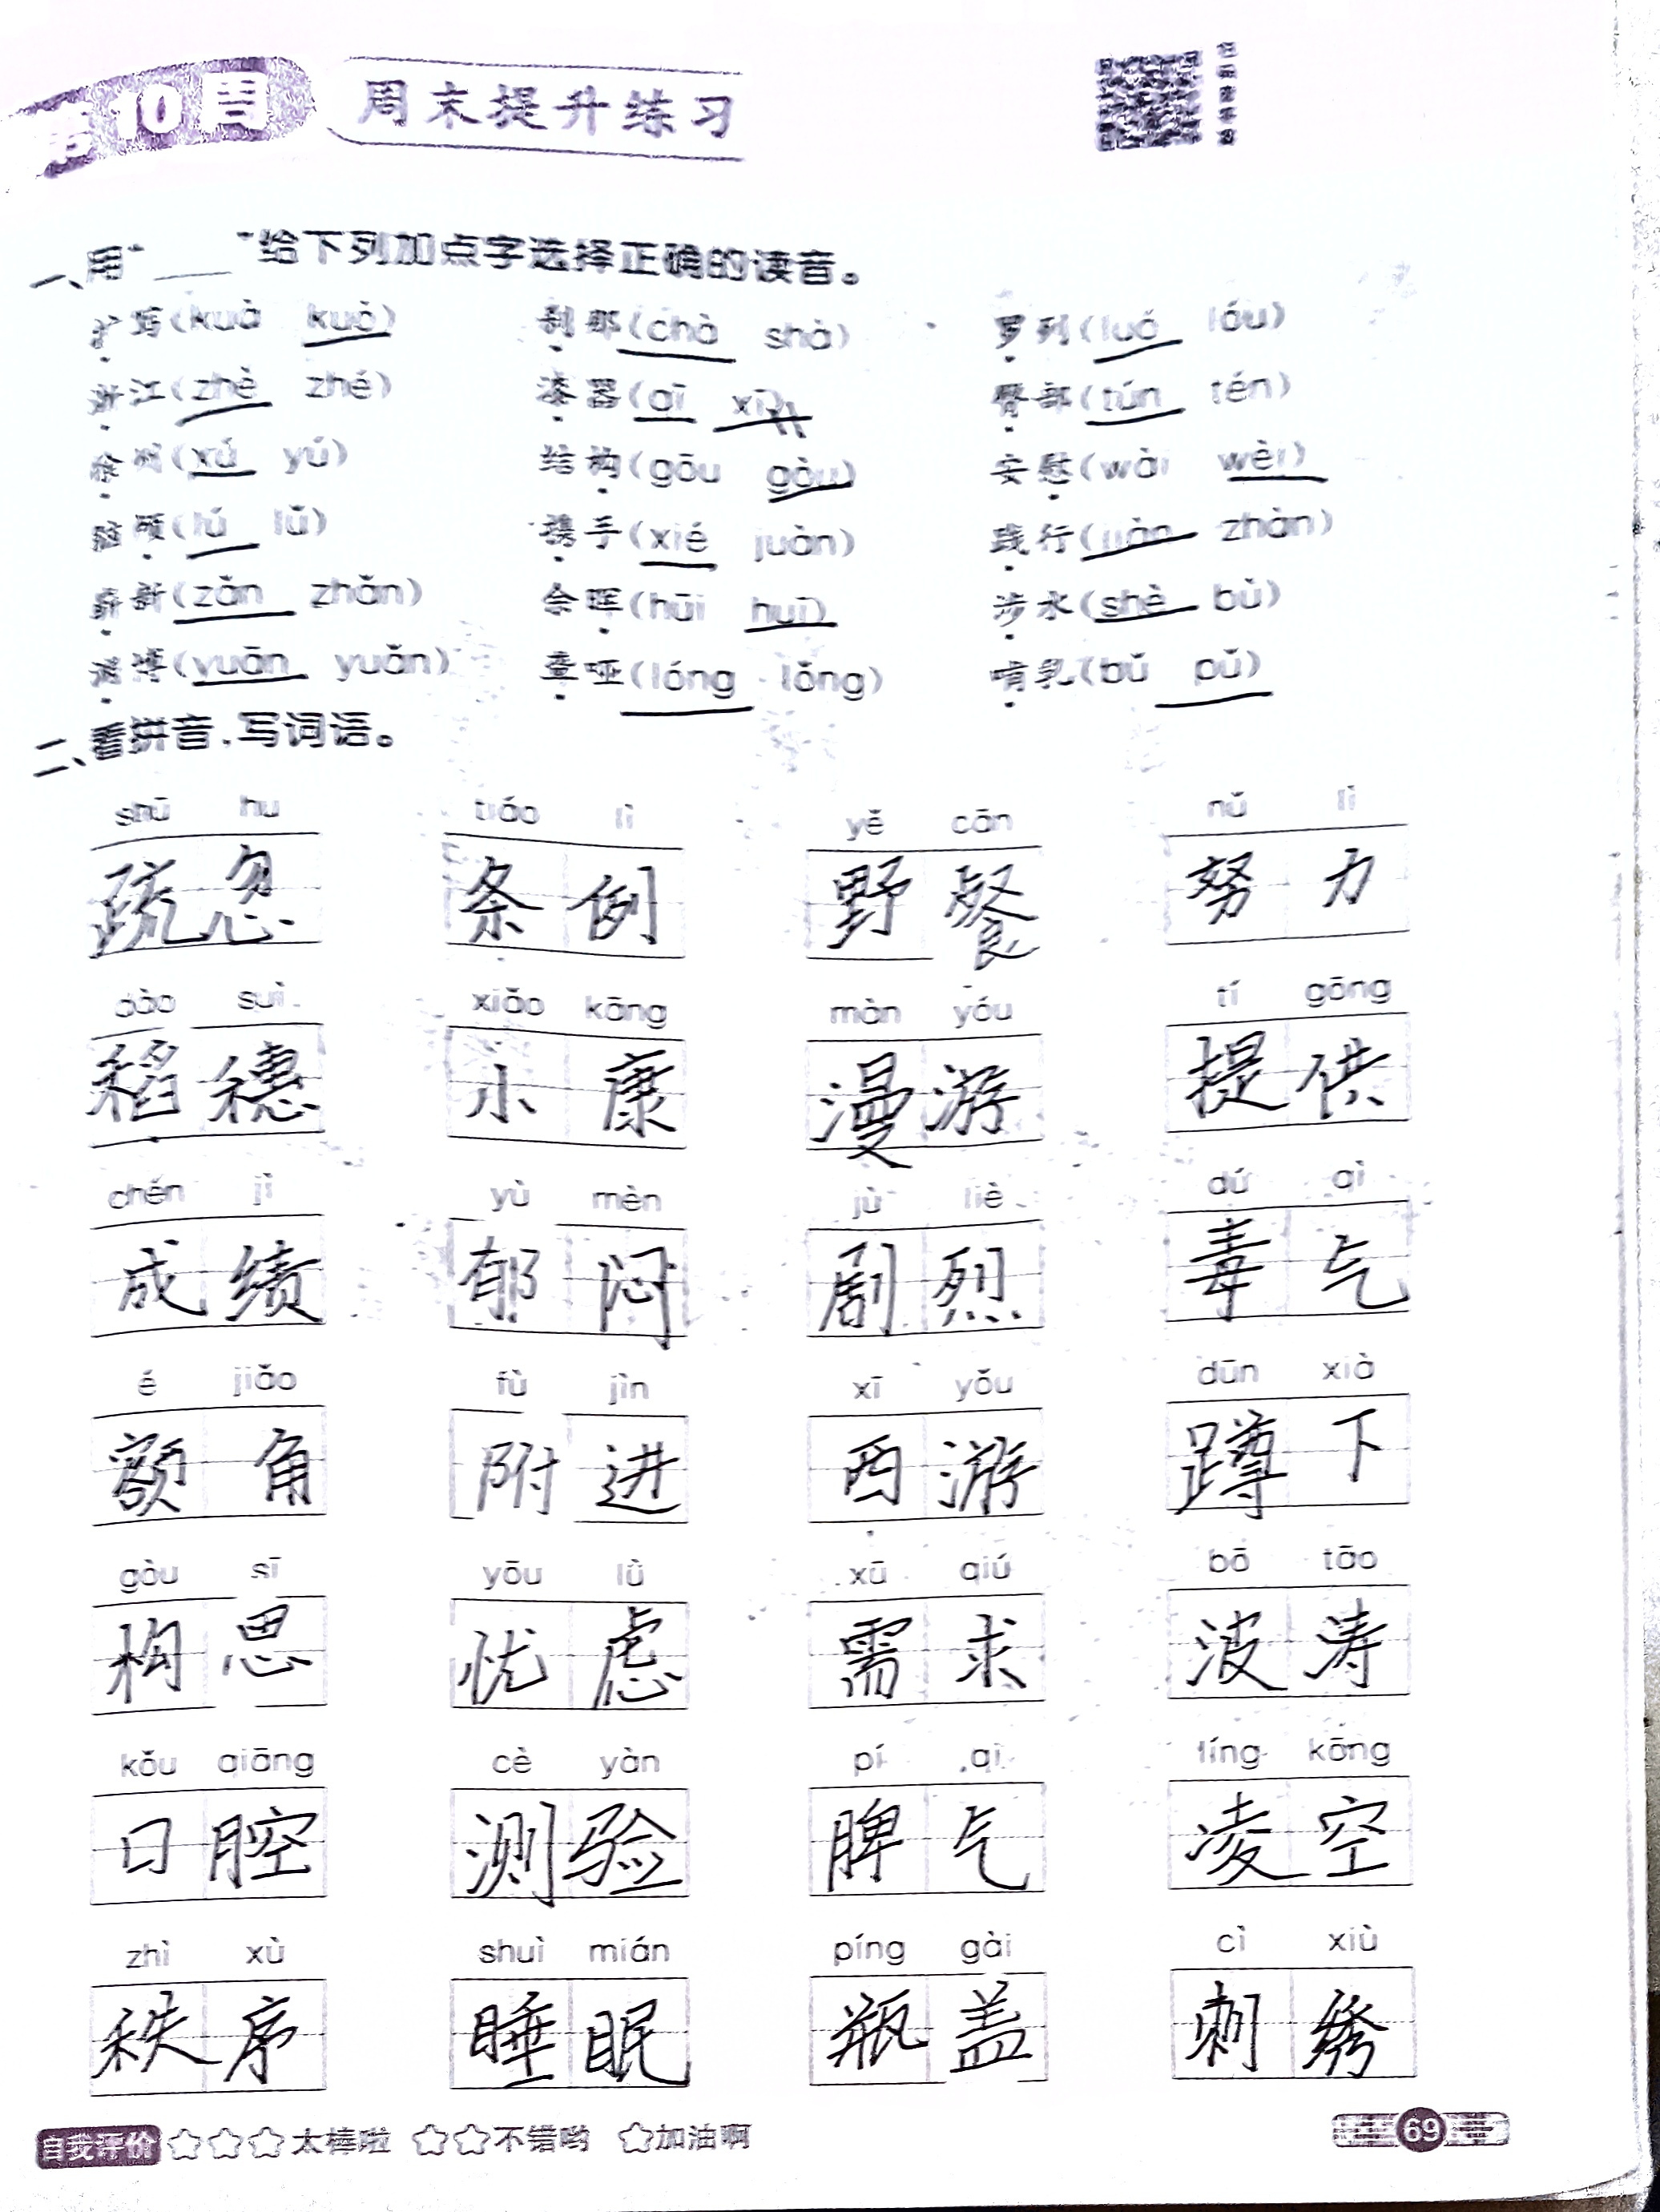 第10周 周末提升练习
一、用“____”给下列加点字选择正确的读音。
扩写(kuò kuò) 刹那(chà shà) 罗列(luó lóu)
浙江(zhè zhé) 漆器(qī xī) 臀部(tún tén)
徐州(xú yú) 结构(gōu gòu) 安慰(wài wèi)
头颅(lú lǔ) 携手(xié juàn) 践行(jiàn zhàn)
崭新(zǎn zhǎn) 余晖(hūi huī) 涉水(shè bù)
渊博(yuān yuǎn) 聋哑(lóng lǒng) 哺乳(bǔ pǔ)
二、看拼音，写词语。
shū hu tiáo lì yě cān nǔ lì
疏忽 条例 野餐 努力
dào suì xiǎo kāng màn yóu tí gōng
稻穗 小康 漫游 提供
chéng jì yù mèn jù liè dú qì
成绩 郁闷 剧烈 毒气
é jiǎo fù jìn xī yǒu dūn xià
额角 附进 西游 蹲下
gòu sī yōu lǜ xū qiú bō tāo
构思 忧虑 需求 波涛
kǒu qiāng cè yàn pí qi líng kōng
口腔 测验 脾气 凌空
zhì xù shuì mián píng gài cì xiù
秩序 睡眠 瓶盖 刺绣
自我评价 ☆☆☆太棒啦 ☆☆不错哟 ☆加油啊
69